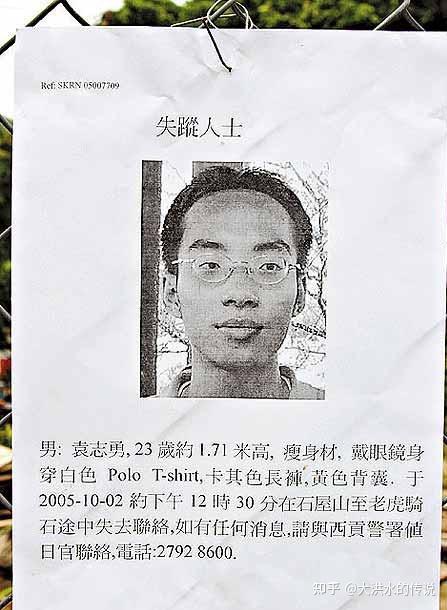 Ref: SKRN 05007709
失蹤人士
男: 袁志勇, 23 歲約 1.71 米高, 瘦身材, 戴眼鏡身
穿白色 Polo T-shirt,卡其色長褲,黃色背囊. 于
2005-10-02 約下午 12 時 30 分在石屋山至老虎騎
石途中失去聯絡,如有任何消息,請與西貢警署值
日官聯絡,電話:2792 8600.
知乎 @大洪水的传说